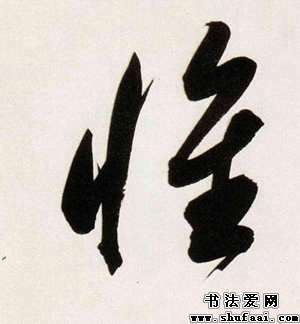 惟
书法爱网
www.shufaai.com